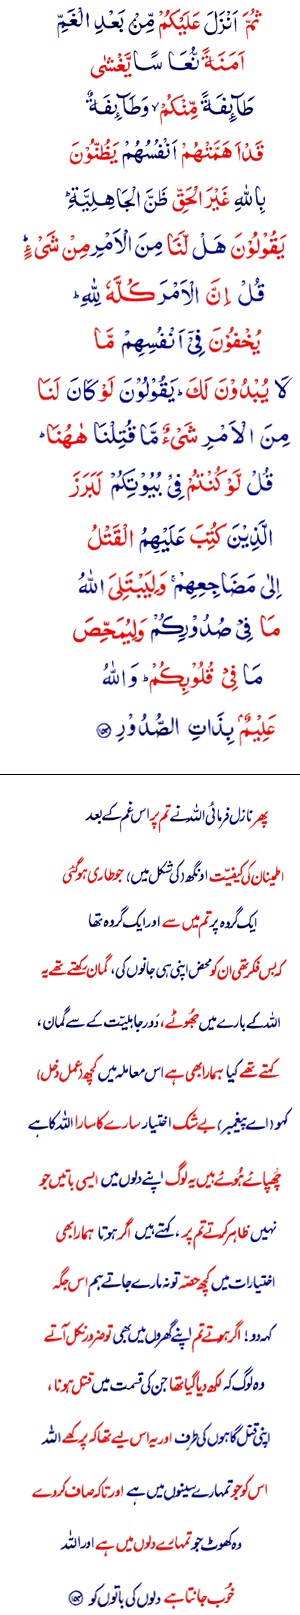 ثُمَّ اَنْزَلَ عَلَيْكُمْ مِّنْ بَعْدِ الْغَمِّ
اَمَنَةً نُّعَا سًا يَّغْشٰى
طَآىِٕفَةً مِّنْكُمْ ۙ وَطَآىِٕفَةٌ
قَدْ اَهَمَّتْهُمْ اَنْفُسُهُمْ يَظُنُّوْنَ
بِاللّٰهِ غَيْرَ الْحَقِّ ظَنَّ الْجَاهِلِيَّةِ ؕ
يَقُوْلُوْنَ هَلْ لَّنَا مِنَ الْاَمْرِ مِنْ شَىْءٍ ؕ
قُلْ اِنَّ الْاَمْرَ كُلَّهٗ لِلّٰهِ ؕ
يُخْفُوْنَ فِىْۤ اَنْفُسِهِمْ مَّا
لَا يُبْدُوْنَ لَكَ ؕ يَقُوْلُوْنَ لَوْ كَانَ لَنَا
مِنَ الْاَمْرِ شَىْءٌ مَّا قُتِلْنَا هٰهُنَا ؕ
قُلْ لَّوْ كُنْتُمْ فِىْ بُيُوْتِكُمْ لَبَرَزَ
الَّذِيْنَ كُتِبَ عَلَيْهِمُ الْقَتْلُ
اِلٰى مَضَاجِعِهِمْ ۚ وَلِيَبْتَلِىَ اللّٰهُ
مَا فِىْ صُدُوْرِكُمْ وَلِيُمَحِّصَ
مَا فِىْ قُلُوْبِكُمْ ؕ وَ اللّٰهُ
عَلِيْمٌۢ بِذَاتِ الصُّدُوْرِ ﴿۱۵۴﴾
پھر نازل فرمائی اللہ نے تم پر اس غم کے بعد
اطمینان کی کیفیّت اونگھ (کی شکل میں) جو طاری ہوگئی
ایک گروہ پر تم میں سے اور ایک گروہ تھا
کہ بس فکر تھی ان کو محض اپنی ہی جانوں کی، گمان رکھتے تھے یہ
اللہ کے بارے میں جھُوٹے، دَورِ جاہلیّت کے سے گمان،
کہتے تھے کیا ہمارا بھی ہے اس معاملہ میں کچھ (عمل دخل)
کہو (اے پیغمبر) بے شک اختیار سارے کا سارا اللہ کا ہے
چھُپائے ہُوئے ہیں یہ لوگ اپنے دلوں میں ایسی باتیں جو
نہیں ظاہر کرتے تم پر، کہتے ہیں اگر ہوتا ہمارا بھی
اختیارات میں کچھ حصّہ تو نہ مارے جاتے ہم اس جگہ
کہہ دو! اگر ہوتے تم اپنے گھروں میں بھی تو ضرور نکل آتے
وہ لوگ کہ لکھ دیا گیا تھا جن کی قسمت میں قتل ہونا،
اپنی قتل گاہوں کی طرف اور یہ اس لیے تھا کہ پرکھے اللہ
اس کو جو تمہارے سینوں میں ہے اور تاکہ صاف کردے
وہ کھوٹ جو تمہارے دلوں میں ہے اور اللہ
خُوب جانتا ہے دلوں کی باتوں کو ﴿۱۵۴﴾